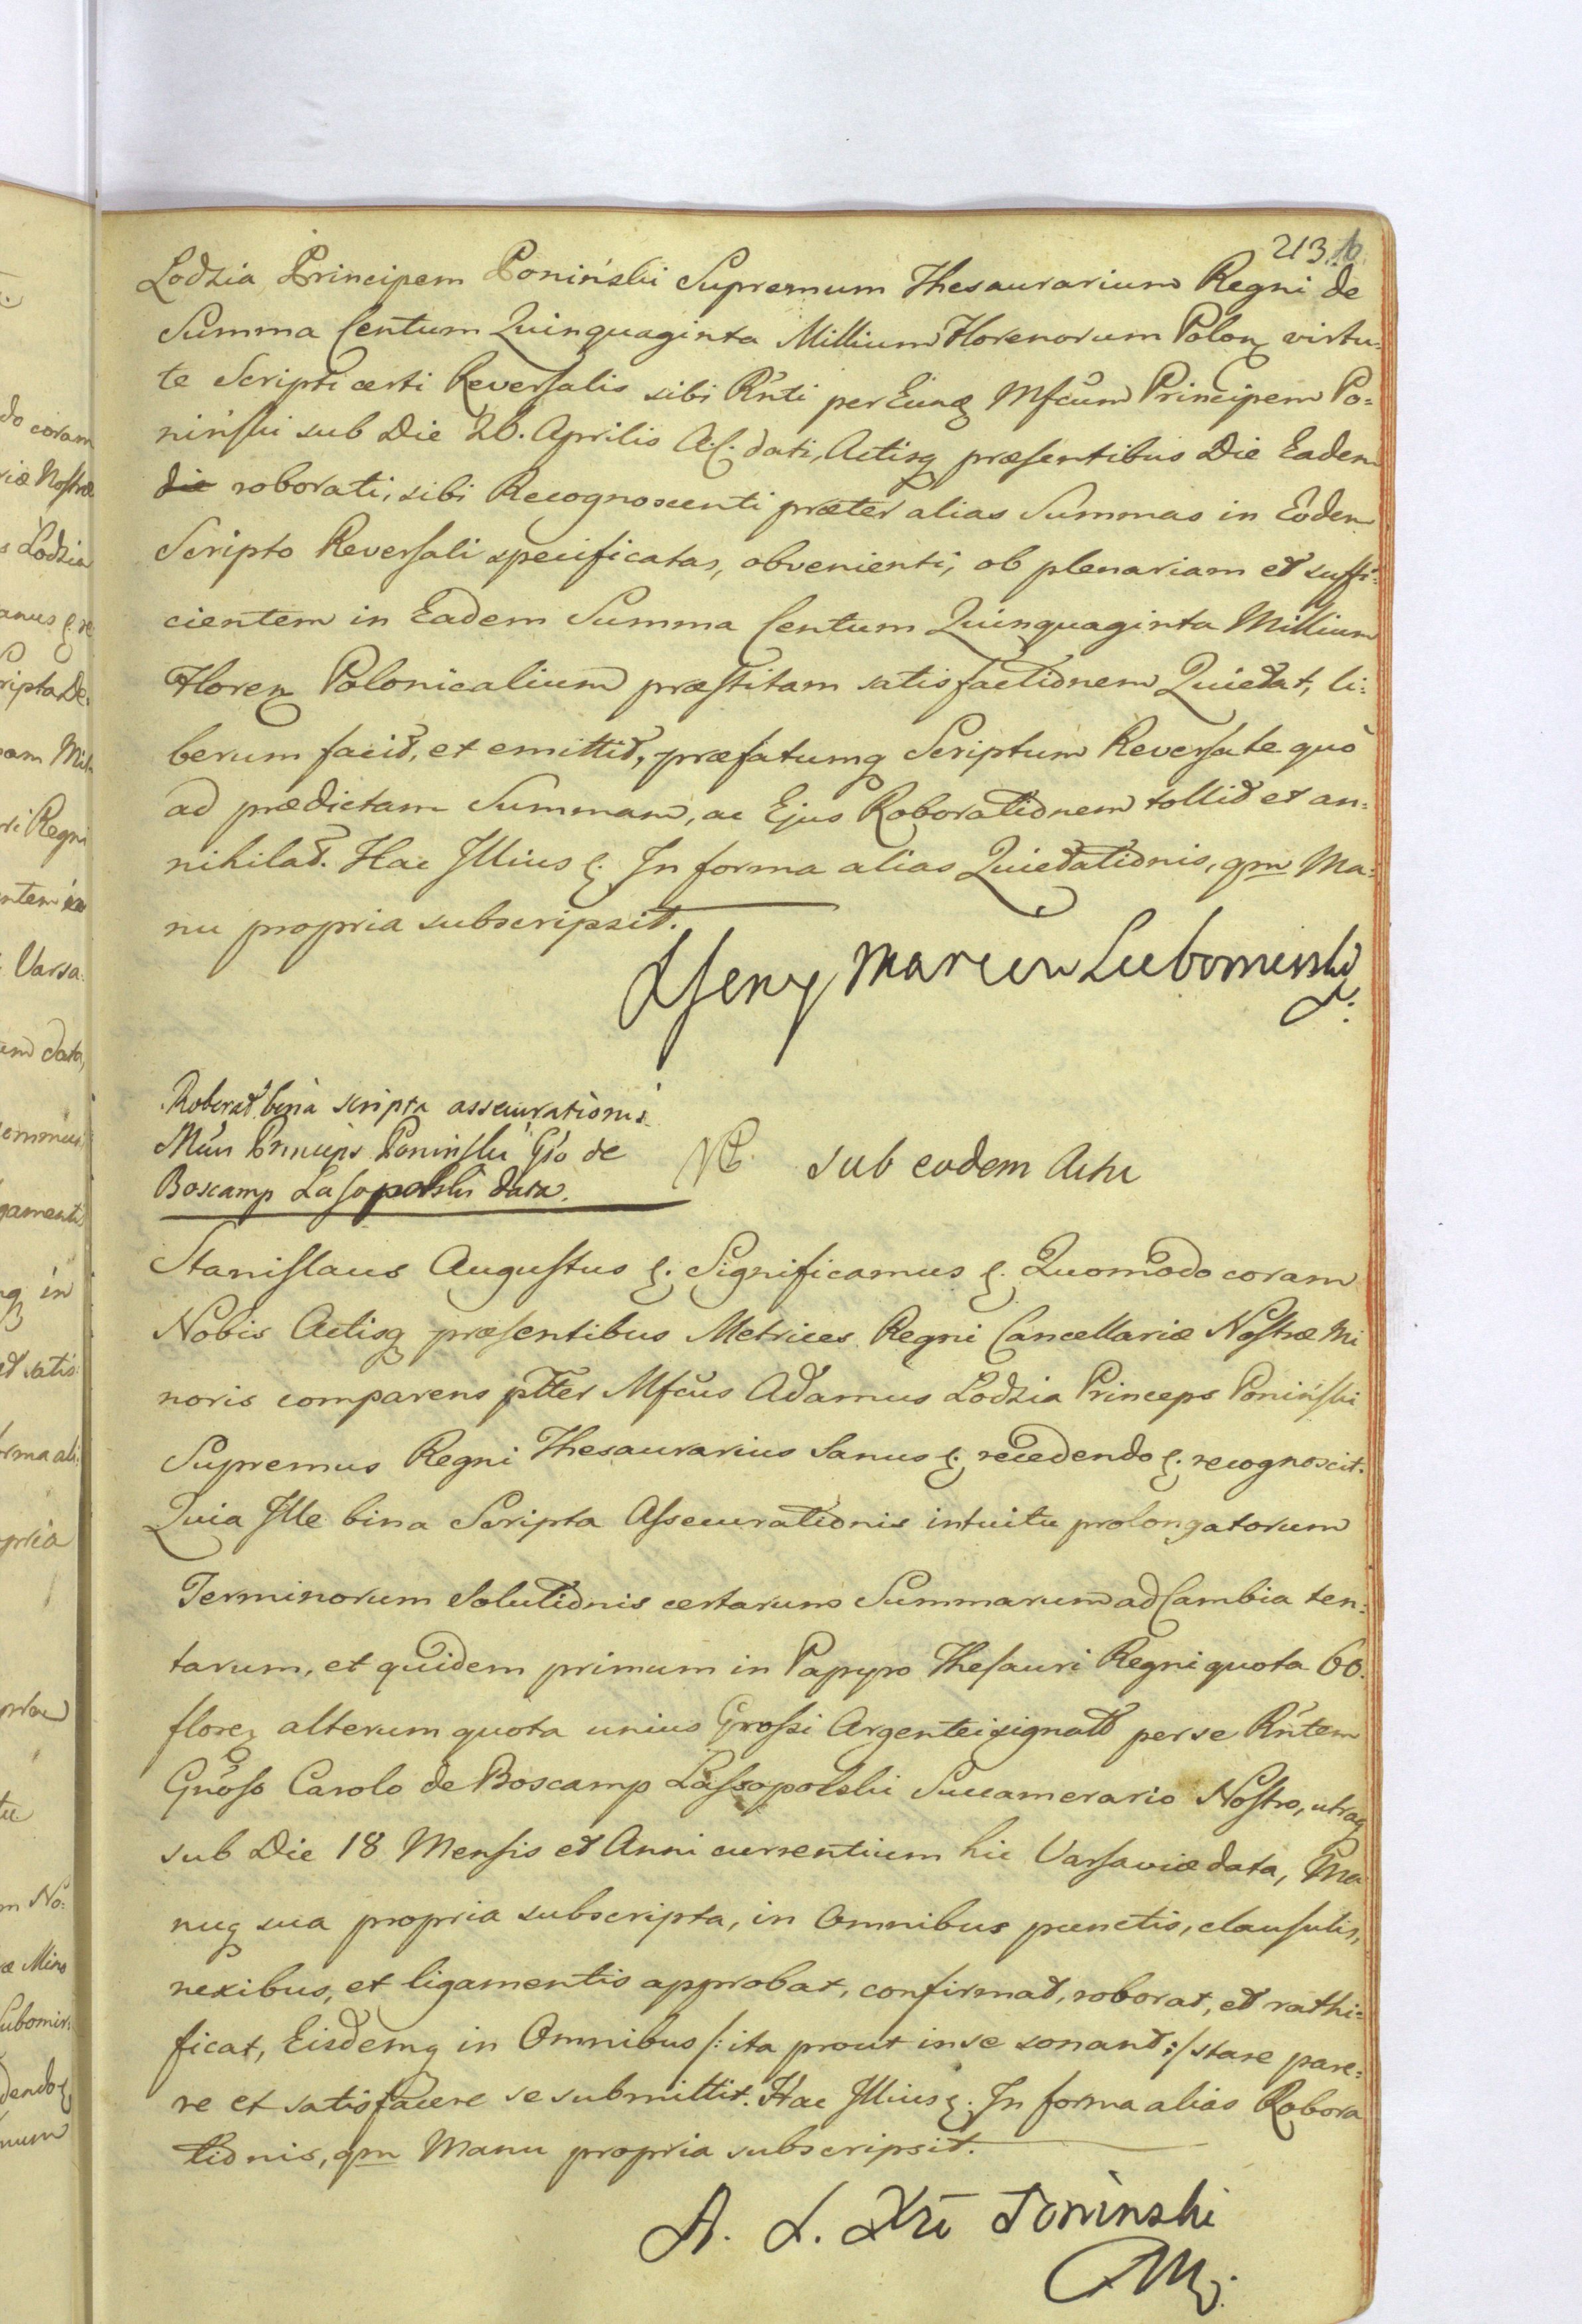 213.
Lodzia Principem Poniński Supremum Thesaurarium Regni de
Summa Centum Quinquaginta Millium Florenorum Polon virtu=
te Scripti certi Reversalis sibi Rn̄ti per Eundq Mfcūm Principem Po=
niński sub Die 26. Aprilis A.C. dati, Actisq præsentibus Die Eadem
die roborati, sibi Recognoscenti præter alias Summas in Eodem
Scripto Reversali specificatas, obvenienti, ob plenariam et suffi=
cientem in Eadem Summa Centum Quinquaginta Millium
Floren Polonicalium præstitam satisfactionem Quietat, li=
berum facit, et emittit, præfatumq Scriptum Reversale quò
ad prædictam Summam, ac Ejus Roborationem tollit et an=
nihilat. Hac Illius &. In forma alias Quietationis, qm Ma=
nu propria subscripsit.
Marcin Lubomirski
Roborat bina scripta assecurationis
Mcūs Princeps Poniński Gſo de
Boscamp Lasopolski data.
sub eodem Actu
Stanislaus Augustus &. Significamus &. Quomodo coram
Nobis Actisq præsentibus Metrices Regni Cancellariæ Nostræ Mi
noris comparens pltter Mfcūs Adamus Lodzia Princeps Poniński
Supremus Regni Thesaurarius Sanus &. recedendo &. recognoscit.
Quia Ille bina Scripta Assecurationis intuitu prolongatorum
Terminorum Solutionis certarum Summarum ad Cambia ten=
tarum, et quidem primum in Papyro Thesauri Regni quota 60.
floren alterum quota unius Grossi Argentei signato per se Rn̄tem
Gnōso Carolo de Boscamp Lassopolski Succamerario Nostro, utraq
sub Die 18 Mensis et Anni currentium hic Varsaviæ data, Ma
nuq sua propria subscripta, in Omnibus punctis, clausulis,
nexibus, et ligamentis approbat, confirmat, roborat, et rathi=
ficat, Eisdemq in Omnibus /: ita prout in se sonant :/ stare pare=
re et satisfacere se submittit. Hac Illius &. In forma alias Robora
tionis, qm Manu propria subscripsit.
A. L. Xże Poninski